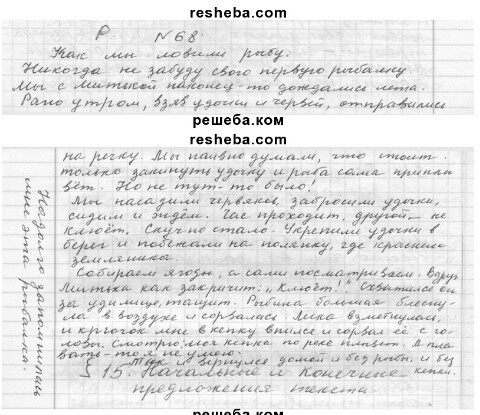 resheba.com
Р. №68.
Как мы ловили рыбу.
Никогда не забуду свою первую рыбалку
Мы с Митькой наконец-то дождались лета.
Рано утром, взяв удочки и червей, отправились
решеба.ком
resheba.com
на речку. Мы наивно думали, что стоит
только закинуть удочку и рыба сама приплы
вёт. Но не тут-то было!
Мы насадили червяков, забросили удочки,
сидим и ждём. Час проходит, другой – не
клюёт. Скучно стало. Укрепили удочки в
берег и побежали на полянку, где краснела
земляника.
Собираем ягоды, а сами посматриваем. Вдруг
Митька как закричит: „Клюёт!" Схватился он
за удилище, тащит. Рыбина большая блесну-
ла в воздухе и сорвалась. Леска взметнулась,
и крючок мне в кепку впился и сорвал её с го-
ловы. Смотрю, моя кепка по реке плывёт. А пла
вать-то я не умею.
Так и вернулся домой и без рыбы, и без
кепки.
Надолго запомнилась
мне эта рыбалка.
§ 15. Начальные и конечные
предложения текста
решеба.ком
resheba.com